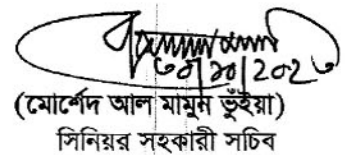 ৩০/১০/২০২৩
(মোর্শেদ আল মামুন ভূঁইয়া)
সিনিয়র সহকারী সচিব